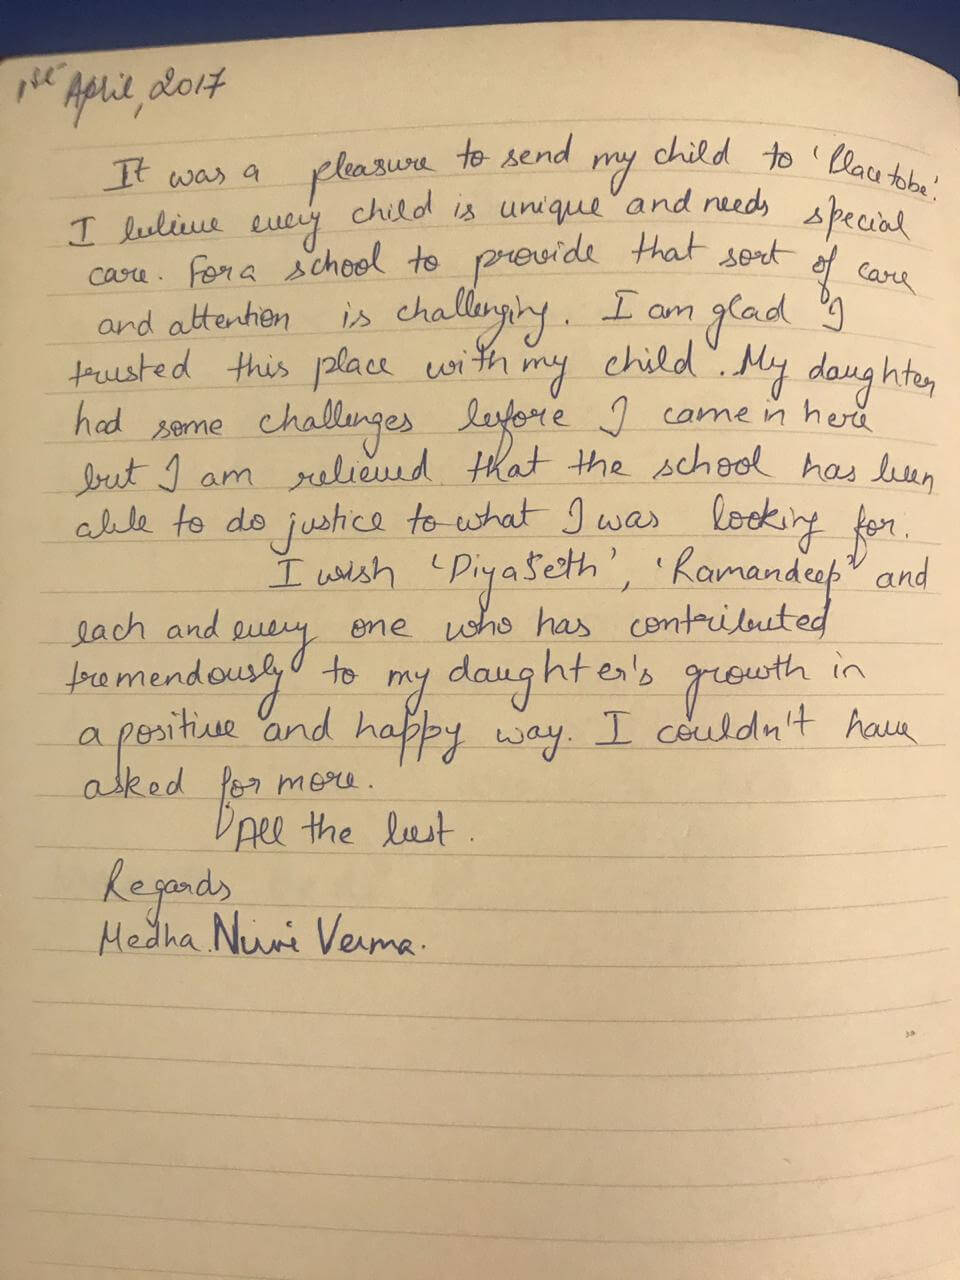 1st April, 2017
It was a pleasure to send my child to 'Placetobe'.
I believe every child is unique and needs special
care. For a school to provide that sort of care
and attention is challenging. I am glad I
trusted this place with my child. My daughter
had some challenges before I came in here
but I am relieved that the school has been
able to do justice to what I was looking for.
I wish 'Diya Seth', 'Ramandeep' and
each and every one who has contributed
tremendously to my daughter's growth in
a positive and happy way. I couldn't have
asked for more.
All the best.
Regards
Medha Verma.